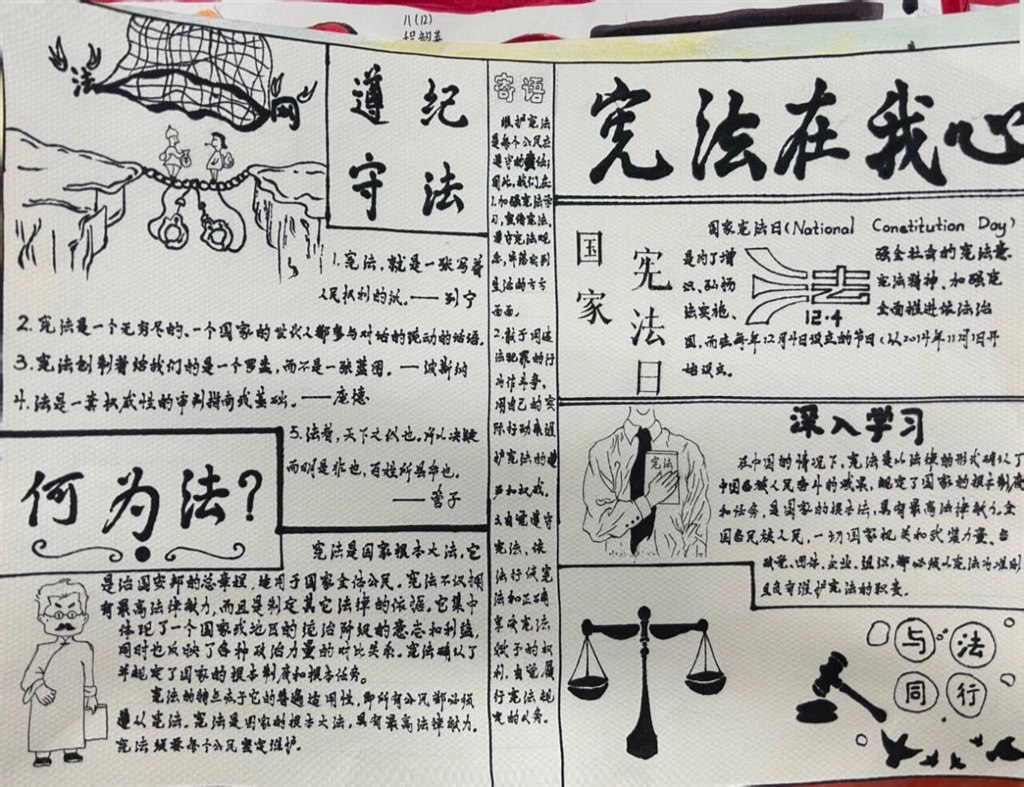 八(12)
法
网
遵纪
守法
1.宪法,就是一张写着
人民权利的纸。——列宁
2.宪法是一个无穷尽的、一个国家的世代人都参与对话的流动的话语。
3.宪法创制者给我们的是一个罗盘,而不是一张蓝图。—波斯纳
4.法是一套权威性的审判指南或基础。——庞德
5.法者,天下之仪也。所以决疑
而明是非也,百姓所县命也。
——管子
何为法?
宪法是国家根本大法,它
是治国安邦的总章程,适用于国家全体公民。宪法不仅拥
有最高法律效力,而且是制定其它法律的依据。它集中
体现了一个国家或地区的统治阶级的意志和利益,
同时也反映了各种政治力量的对比关系。宪法确认了
并规定了国家的根本制度和根本任务。
宪法的特点在于它的普遍适用性,即所有公民都必须
遵从宪法。宪法是国家的根本大法,具有最高法律效力,
宪法须要每个公民坚定维护。
寄语
维护宪法
是每个公民应
遵守的
因此,我们应
1.加强宪法学
习,宣传宪法,
遵守宪法观
念,
生活的方方
面面。
2.敢于同违
法犯罪的行
为作斗争,
用自己的实
际行动来维
护宪法的尊
严和权威。
3.自觉遵守
宪法,依
法行使宪
法和正确
宪法
赋予的权
利,自觉履
行宪法规
定的义务。
宪法在我心
国家
宪法日
国家宪法日(National Constitution Day)
是为了增强全社会的宪法意
识、弘扬宪法精神、加强宪
法实施、全面推进依法治
12·4
国,而在每年12月4日设立的节日(从2014年11月1日开
始设立。
宪法
深入学习
在中国的情况下,宪法是以法律的形式确认了
中国各族人民奋斗的成果,规定了国家的根本制度
和任务,是国家的根本法,具有最高法律效力。全
国各民族人民,一切国家机关和武装力量、各
政党、团体、企业、组织,都必须以宪法为准则
且负有维护宪法的职责。
与法
同行